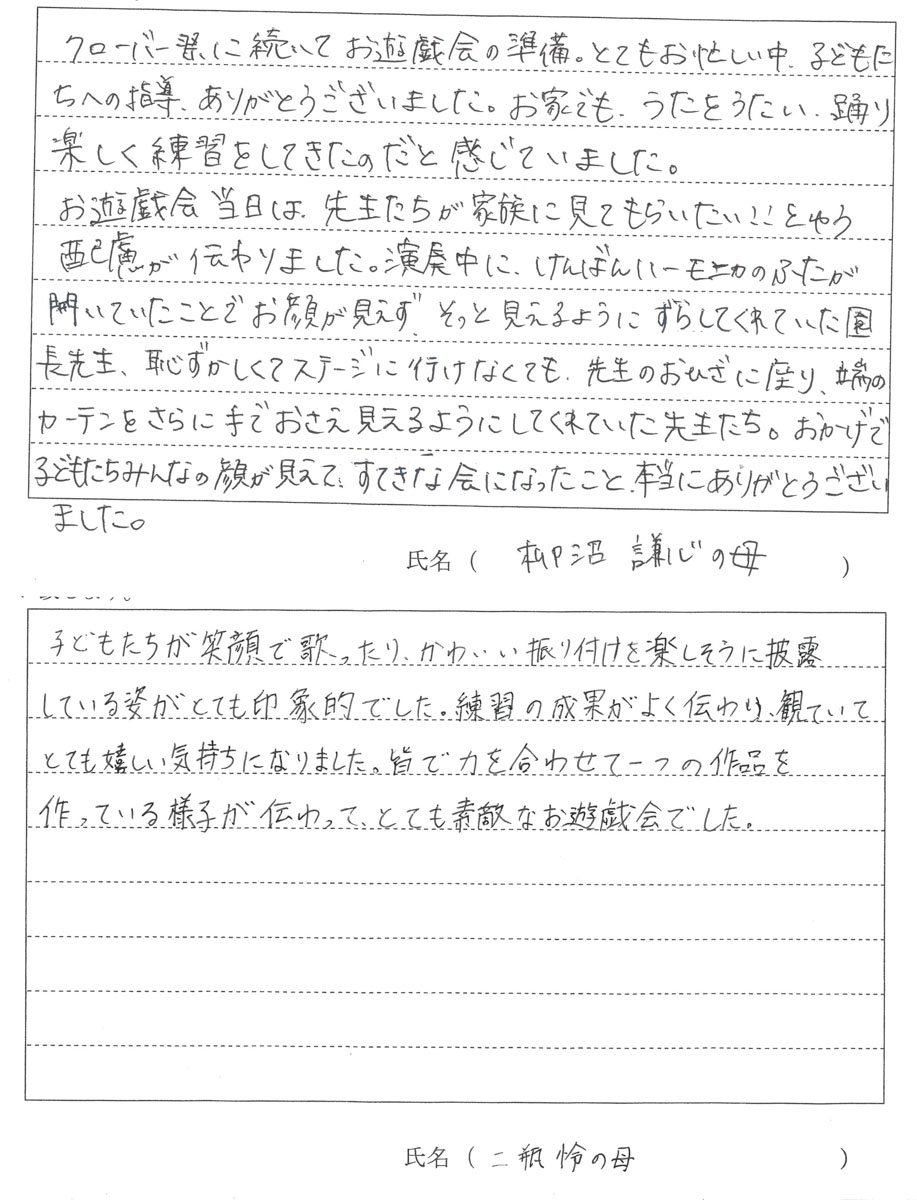 クローバー祭に続いてお遊戯会の準備。とてもお忙しい中、子どもた
ちへの指導、ありがとうございました。お家でも、うたをうたい、踊り
楽しく練習をしてきたのだと感じていました。
お遊戯会当日は、先生たちが家族に見てもらいたい!!とゆう
配慮が伝わりました。演奏中に、けんばんハーモニカのふたが
開いていたことでお顔が見えず、そっと見えるようにずらしてくれていた園
長先生、恥ずかしくてステージに行けなくても、先生のおひざに座り、端の
カーテンをさらに手でおさえ見えるようにしてくれていた先生たち。おかげで
子どもたちみんなの顔が見えて、すてきな会になったこと、本当にありがとうござい
ました。
氏名（ 柳沼 謙心の母 ）
子どもたちが笑顔で歌ったり、かわいい振り付けを楽しそうに披露
している姿がとても印象的でした。練習の成果がよく伝わり、観ていて
とても嬉しい気持ちになりました。皆で力を合わせて一つの作品を
作っている様子が伝わって、とても素敵なお遊戯会でした。
氏名（ 二瓶 怜の母 ）